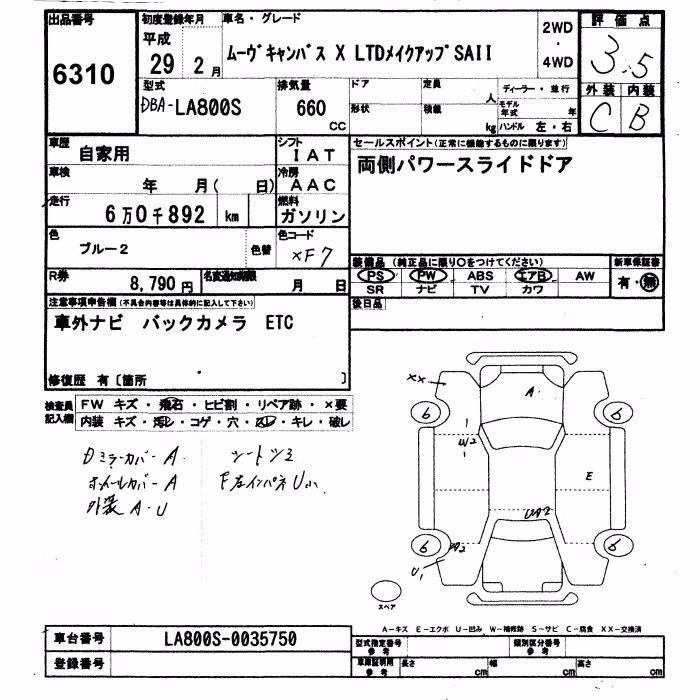 出品番号
6310
初度登録年月
平成
29 2月
車名・グレード
ムーヴキャンバス X LTDメイクアップSAII
2WD
・
4WD
評価点
3.5
外装 内装
C B
型式
DBA-LA800S
排気量
660
CC
ドア
形状
定員
人
積載
kg
ディーラー・並行
モデル年式 年
ハンドル 左・右
車歴
自家用
シフト
IAT
車検
年 月( 日)
冷房
AAC
走行
6万0千892 km
燃料
ガソリン
色
ブルー2
色替
色コード
XF7
R券
8,790円
名変通知期限
月 日
セールスポイント(正常に機能するものに限ります)
両側パワースライドドア
装備品 (純正品に限り○をつけてください)
PS PW ABS エアB AW
SR ナビ TV カワ
新車保証書
有・無
後日品
注意事項申告欄(不具合内容等は具体的に記入して下さい)
車外ナビ バックカメラ ETC
修復歴 有〔箇所 〕
検査員
記入欄
FW キズ・飛石・ヒビ割・リペア跡・×要
内装 キズ・汚レ・コゲ・穴・スレ・キレ・破レ
Dミラーカバー A
ホイールカバー A
外装 A・U
シートツミ
F左インパネ U小
XX
A
6
6
W2
E
UA2
6
6
A2
U1
スペア
A-キズ E-エクボ U-凹み W-補修跡 S-サビ C-腐食 XX-交換済
車台番号
LA800S-0035750
登録番号
型式指定番号
参考
類別区分番号
参考
車庫証明用
参考
長さ cm
幅 cm
高さ cm